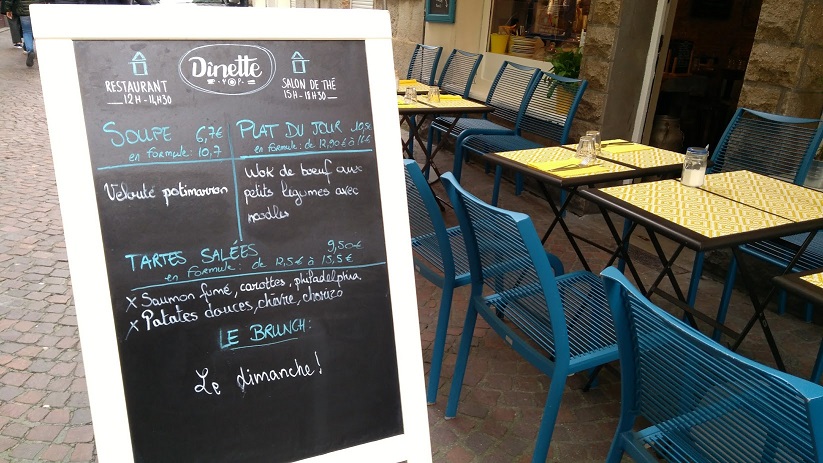 Dînette
RESTAURANT
12H - 14H30
SALON DE THÉ
15H - 18H30
SOUPE 6,7€
en formule: 10,7
Velouté potimarron
PLAT DU JOUR 10,5€
en formule: de 12,90€ à 16€
Wok de bœuf aux
petits légumes avec
noodles
TARTES SALÉES 9,50€
en formule: de 12,5€ à 15,5€
X Saumon fumé, carottes, philadelphia
X Patates douces, chèvre, chorizo
LE BRUNCH:
Le dimanche!